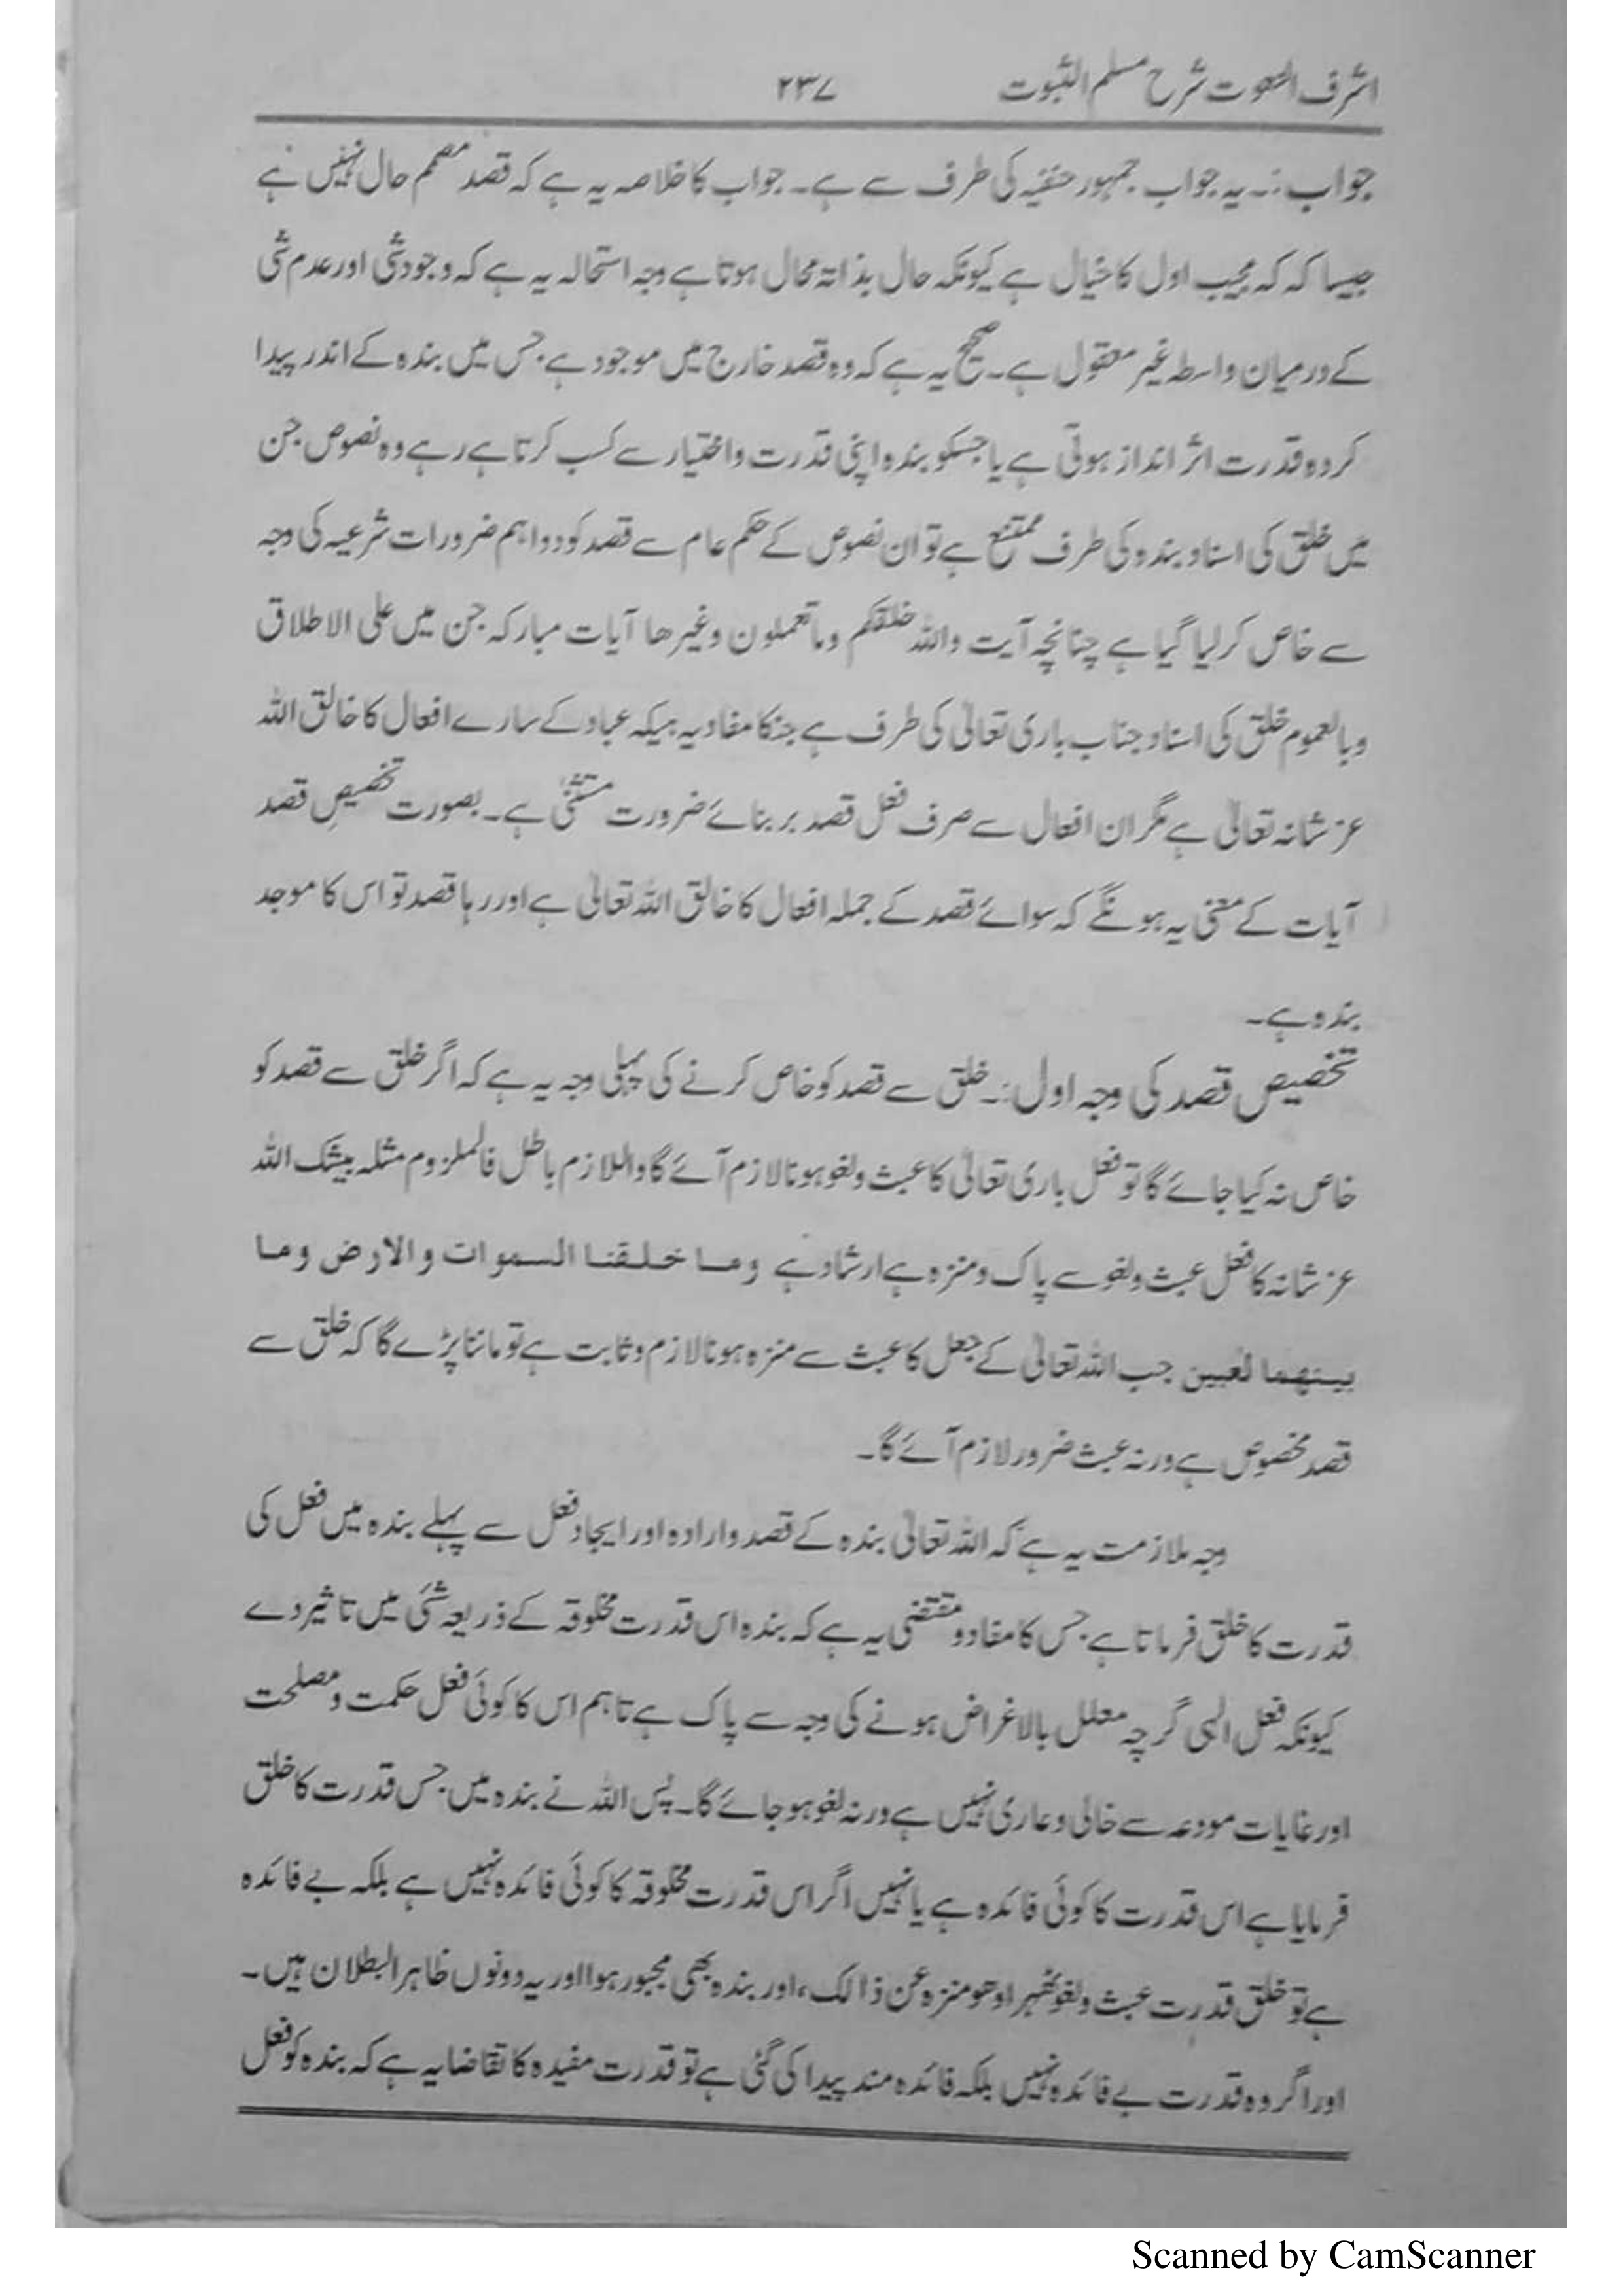 اشرف الثبوت شرح مسلم الثبوت ۲۳۷
جواب :۔ یہ جواب جمہور حنفیہ کی طرف سے ہے۔ جواب کا خلاصہ یہ ہے کہ قصد مصمم حال نہیں ہے
جیسا کہ کہ مجیب اول کا خیال ہے کیونکہ حال بذاتہ محال ہوتا ہے وجہ استحالہ یہ ہے کہ وجود شی اور عدم شی
کے درمیان واسطہ غیر معقول ہے۔ صحیح یہ ہے کہ وہ قصد خارج میں موجود ہے جس میں بندہ کے اندر پیدا
کردہ قدرت اثر انداز ہوتی ہے یا جسکو بندہ اپنی قدرت و اختیار سے کسب کرتا ہے رہے وہ نصوص جن
میں خلق کی اسناد بندہ کی طرف ممتنع ہے تو ان نصوص کے حکم عام سے قصد کو دو اہم ضرورات شرعیہ کی وجہ
سے خاص کرلیا گیا ہے چنانچہ آیت واللہ خلقکم وما تعملون وغیرھا آیات مبارکہ جن میں علی الاطلاق
وبالعموم خلق کی اسناد جناب باری تعالیٰ کی طرف ہے جنکا مفاد یہ ہیکہ عباد کے سارے افعال کا خالق اللہ
عز شانہ تعالیٰ ہے مگر ان افعال سے صرف فعل قصد بر بنائے ضرورت مستثنیٰ ہے۔ بصورت تخصیصِ قصد
آیات کے معنی یہ ہونگے کہ سوائے قصد کے جملہ افعال کا خالق اللہ تعالیٰ ہے اور رہا قصد تو اس کا موجد
بندہ ہے۔
تخصیص قصد کی وجہ اول :۔ خلق سے قصد کو خاص کرنے کی پہلی وجہ یہ ہے کہ اگر خلق سے قصد کو
خاص نہ کیا جائے گا تو فعل باری تعالیٰ کا عبث ولغو ہونا لازم آئے گا واللازم باطل فالملزوم مثلہ بیشک اللہ
عز شانہ کا فعل عبث ولغو سے پاک و منزہ ہے ارشاد ہے وما خلقنا السموات والارض وما
بینھما لعبین جب اللہ تعالیٰ کے جعل کا عبث سے منزہ ہونا لازم وثابت ہے تو ماننا پڑے گا کہ خلق سے
قصد مخصوص ہے ورنہ عبث ضرور لازم آئے گا۔
وجہ ملازمت یہ ہے کہ اللہ تعالیٰ بندہ کے قصد وارادہ اور ایجاد فعل سے پہلے بندہ میں فعل کی
قدرت کا خلق فرماتا ہے جس کا مفاد و مقتضی یہ ہے کہ بندہ اس قدرت مخلوقہ کے ذریعہ شئی میں تاثیر دے
کیونکہ فعل الہی گرچہ معلل بالاغراض ہونے کی وجہ سے پاک ہے تاہم اس کا کوئی فعل حکمت و مصلحت
اور غایات مودعہ سے خالی وعاری نہیں ہے ورنہ لغو ہو جائے گا۔ پس اللہ نے بندہ میں جس قدرت کا خلق
فرمایا ہے اس قدرت کا کوئی فائدہ ہے یا نہیں اگر اس قدرت مخلوقہ کا کوئی فائدہ نہیں ہے بلکہ بے فائدہ
ہے تو خلق قدرت عبث ولغو ٹھہرا وھو منزہ عن ذالک، اور بندہ بھی مجبور ہوا اور یہ دونوں ظاہر البطلان ہیں۔
اور اگر وہ قدرت بے فائدہ نہیں بلکہ فائدہ مند پیدا کی گئی ہے تو قدرت مفیدہ کا تقاضا یہ ہے کہ بندہ کو فعل
Scanned by CamScanner